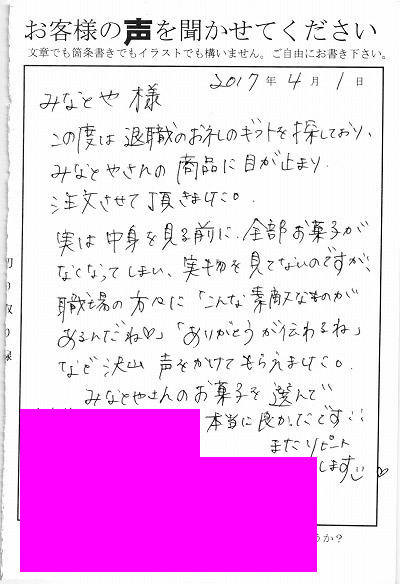 お客様の声を聞かせてください
文章でも箇条書きでもイラストでも構いません。ご自由にお書き下さい。
2017年4月1日
みなとや 様
この度は退職のお礼のギフトを探しており、
みなとやさんの商品に目が止まり
注文させて頂きました。
実は中身を見る前に、全部お菓子が
なくなってしまい、実物を見てないのですが、
職場の方々に「こんな素敵なものが
あるんだね♡」「ありがとうが伝わるね」
など沢山声をかけてもらえました。
みなとやさんのお菓子を選んで
本当に良かったです
またリピート
します
うか？